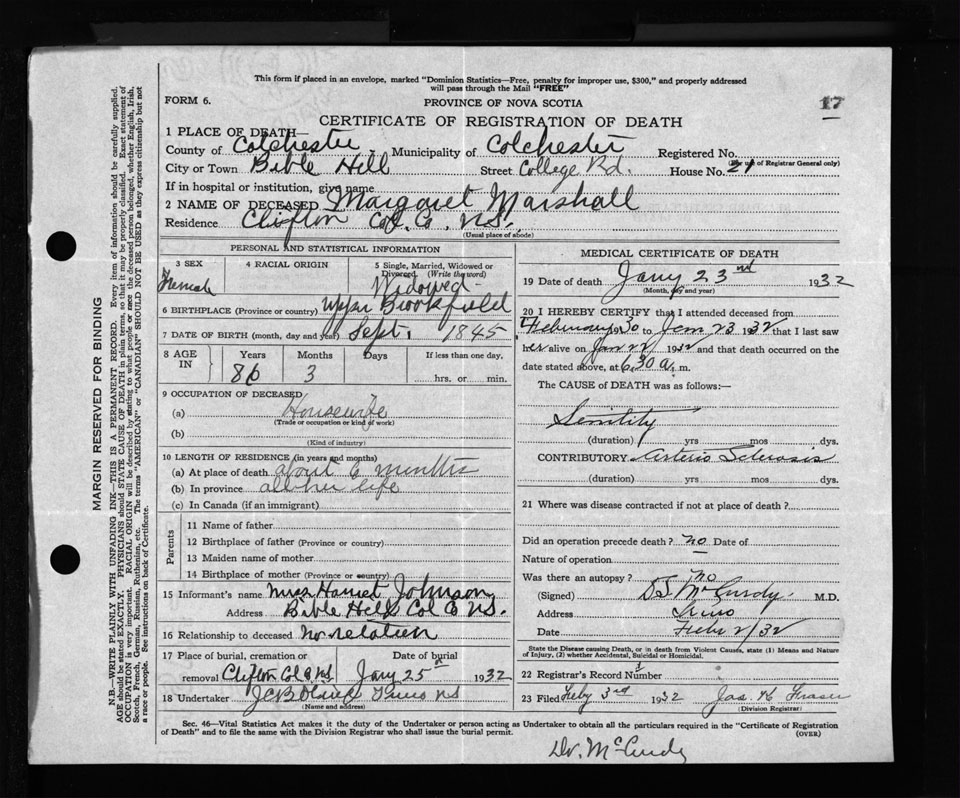 This form if placed in an envelope, marked "Dominion Statistics—Free, penalty for improper use, $300," and properly addressed
will pass through the Mail "FREE"
FORM 6.
PROVINCE OF NOVA SCOTIA
17
CERTIFICATE OF REGISTRATION OF DEATH
1 PLACE OF DEATH—
County of Colchester Municipality of Colchester Registered No.
(For use of Registrar General only)
City or Town Bible Hill Street College Rd. House No. 21
If in hospital or institution, give name
2 NAME OF DECEASED Margaret Marshall
Residence Clifton Col. Co. N.S.
(Usual place of abode)
PERSONAL AND STATISTICAL INFORMATION
3 SEX
Female
4 RACIAL ORIGIN
5 Single, Married, Widowed or
Divorced (Write the word)
Widowed
6 BIRTHPLACE (Province or country) Upper Brookfield
7 DATE OF BIRTH (month, day and year) Sept. 1845
8 AGE IN
Years Months Days If less than one day,
86 3 hrs. or min.
9 OCCUPATION OF DECEASED
(a) Housewife
(Trade or occupation or kind of work)
(b)
(Kind of industry)
10 LENGTH OF RESIDENCE (in years and months)
(a) At place of death about 6 months
(b) In province all her life
(c) In Canada (if an immigrant)
Parents
11 Name of father
12 Birthplace of father (Province or country)
13 Maiden name of mother
14 Birthplace of mother (Province or country)
15 Informant's name Mrs Harriet Johnson
Address Bible Hill Col Co N.S.
16 Relationship to deceased no relation
17 Place of burial, cremation or
removal Clifton Col Co N.S.
Date of burial
Jany 25 1932
18 Undertaker Truro N S
(Name and address)
MEDICAL CERTIFICATE OF DEATH
19 Date of death Jany 23rd 1932
(Month, day and year)
20 I HEREBY CERTIFY that I attended deceased from
February 30 to Jan 23 1932 that I last saw
her alive on Jan 22 1932 and that death occurred on the
date stated above, at 6.30 a. m.
The CAUSE OF DEATH was as follows:
Senility
(duration) yrs mos dys.
CONTRIBUTORY Arterio Sclerosis
(duration) yrs mos dys.
21 Where was disease contracted if not at place of death?
Did an operation precede death? no Date of
Nature of operation
Was there an autopsy? no
(Signed) McCurdy M.D.
Address Truro
Date Feby 2/32
State the Disease causing Death, or in death from Violent Causes, state (1) Means and Nature
of Injury, (2) whether Accidental, Suicidal or Homicidal.
22 Registrar's Record Number
23 Filed Feby 3rd 1932 Jas. K Fraser
(Division Registrar)
Sec. 46—Vital Statistics Act makes it the duty of the Undertaker or person acting as Undertaker to obtain all the particulars required in the "Certificate of Registration
of Death" and to file the same with the Division Registrar who shall issue the burial permit.
(OVER)
Dr. McCurdy
MARGIN RESERVED FOR BINDING
N.B.—WRITE PLAINLY WITH UNFADING INK—THIS IS A PERMANENT RECORD. Every item of information should be carefully supplied.
AGE should be stated EXACTLY. PHYSICIANS should STATE CAUSE OF DEATH in plain terms, so that it may be properly classified. Exact statement of
OCCUPATION is very important. RACIAL ORIGIN will be described by stating to what people or race the deceased person belonged, whether English, Irish,
Scotch, French, German, Russian, Ruthenian, etc. The terms "AMERICAN" or "CANADIAN" SHOULD NOT BE USED as they express citizenship but not
a race or people. See instructions on back of Certificate.